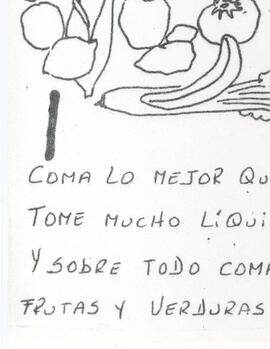 COMA LO MEJOR QU
TOME MUCHO LÍQUI
Y SOBRE TODO COMA
FRUTAS Y VERDURAS